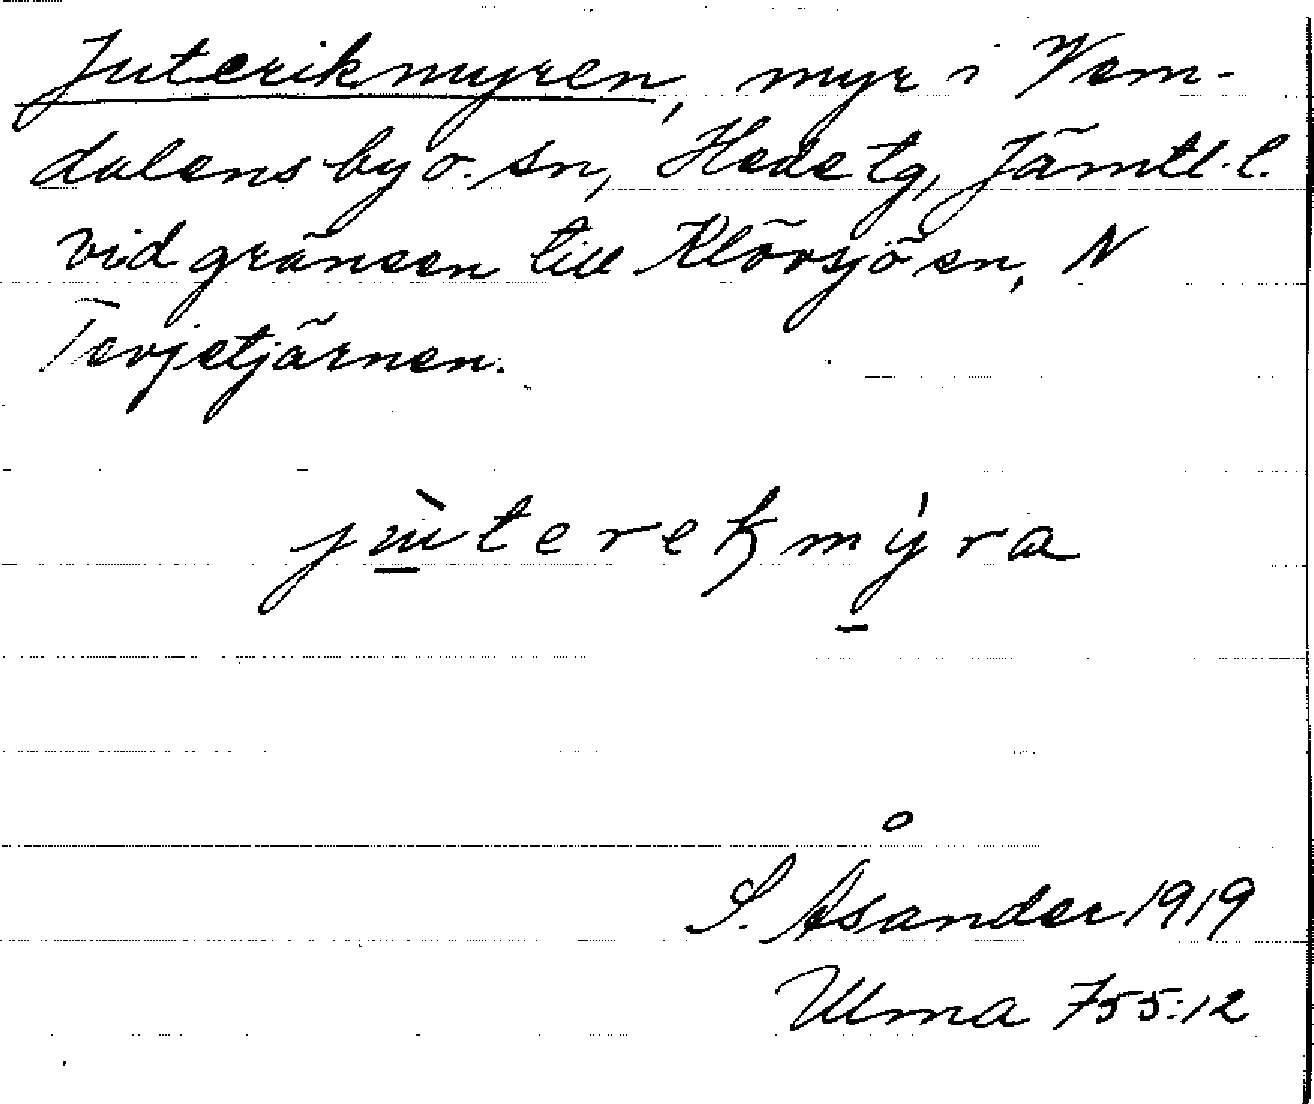 Juterikmyren, myr i Vem-
dalens by o. sn, Hede tg, Jämtl. l.
vid gränsen till Klövsjö sn, N
Tevjetjärnen.
jùterekmýra
S. Åsander 1919
Ulma 755:12